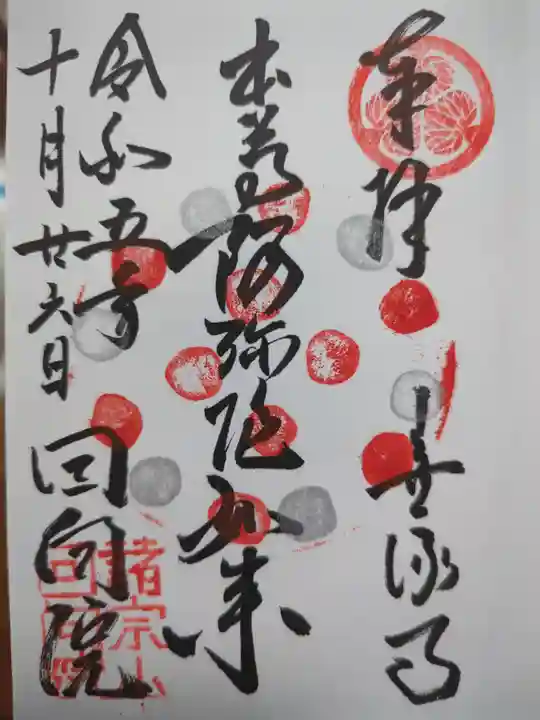 奉拝
無縁寺
本尊阿弥陀如来
令和五年
十月廿六日
回向院
諸宗山
回向院